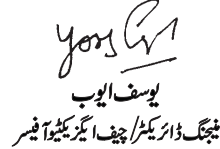 یوسف ایوب
منیجنگ ڈائریکٹر/ چیف ایگزیکٹیو آفیسر